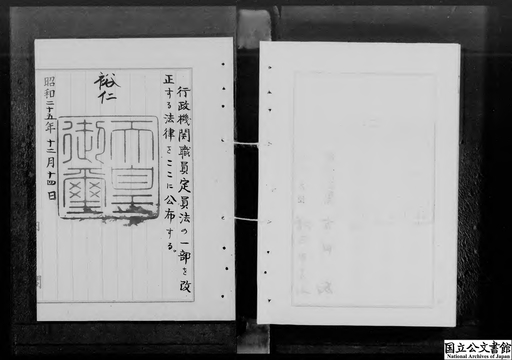 行政機関職員定員法の一部を改
正する法律をここに公布する。
裕仁
天皇
御璽
昭和二十五年十二月十四日
内 閣
国立公文書館
National Archives of Japan